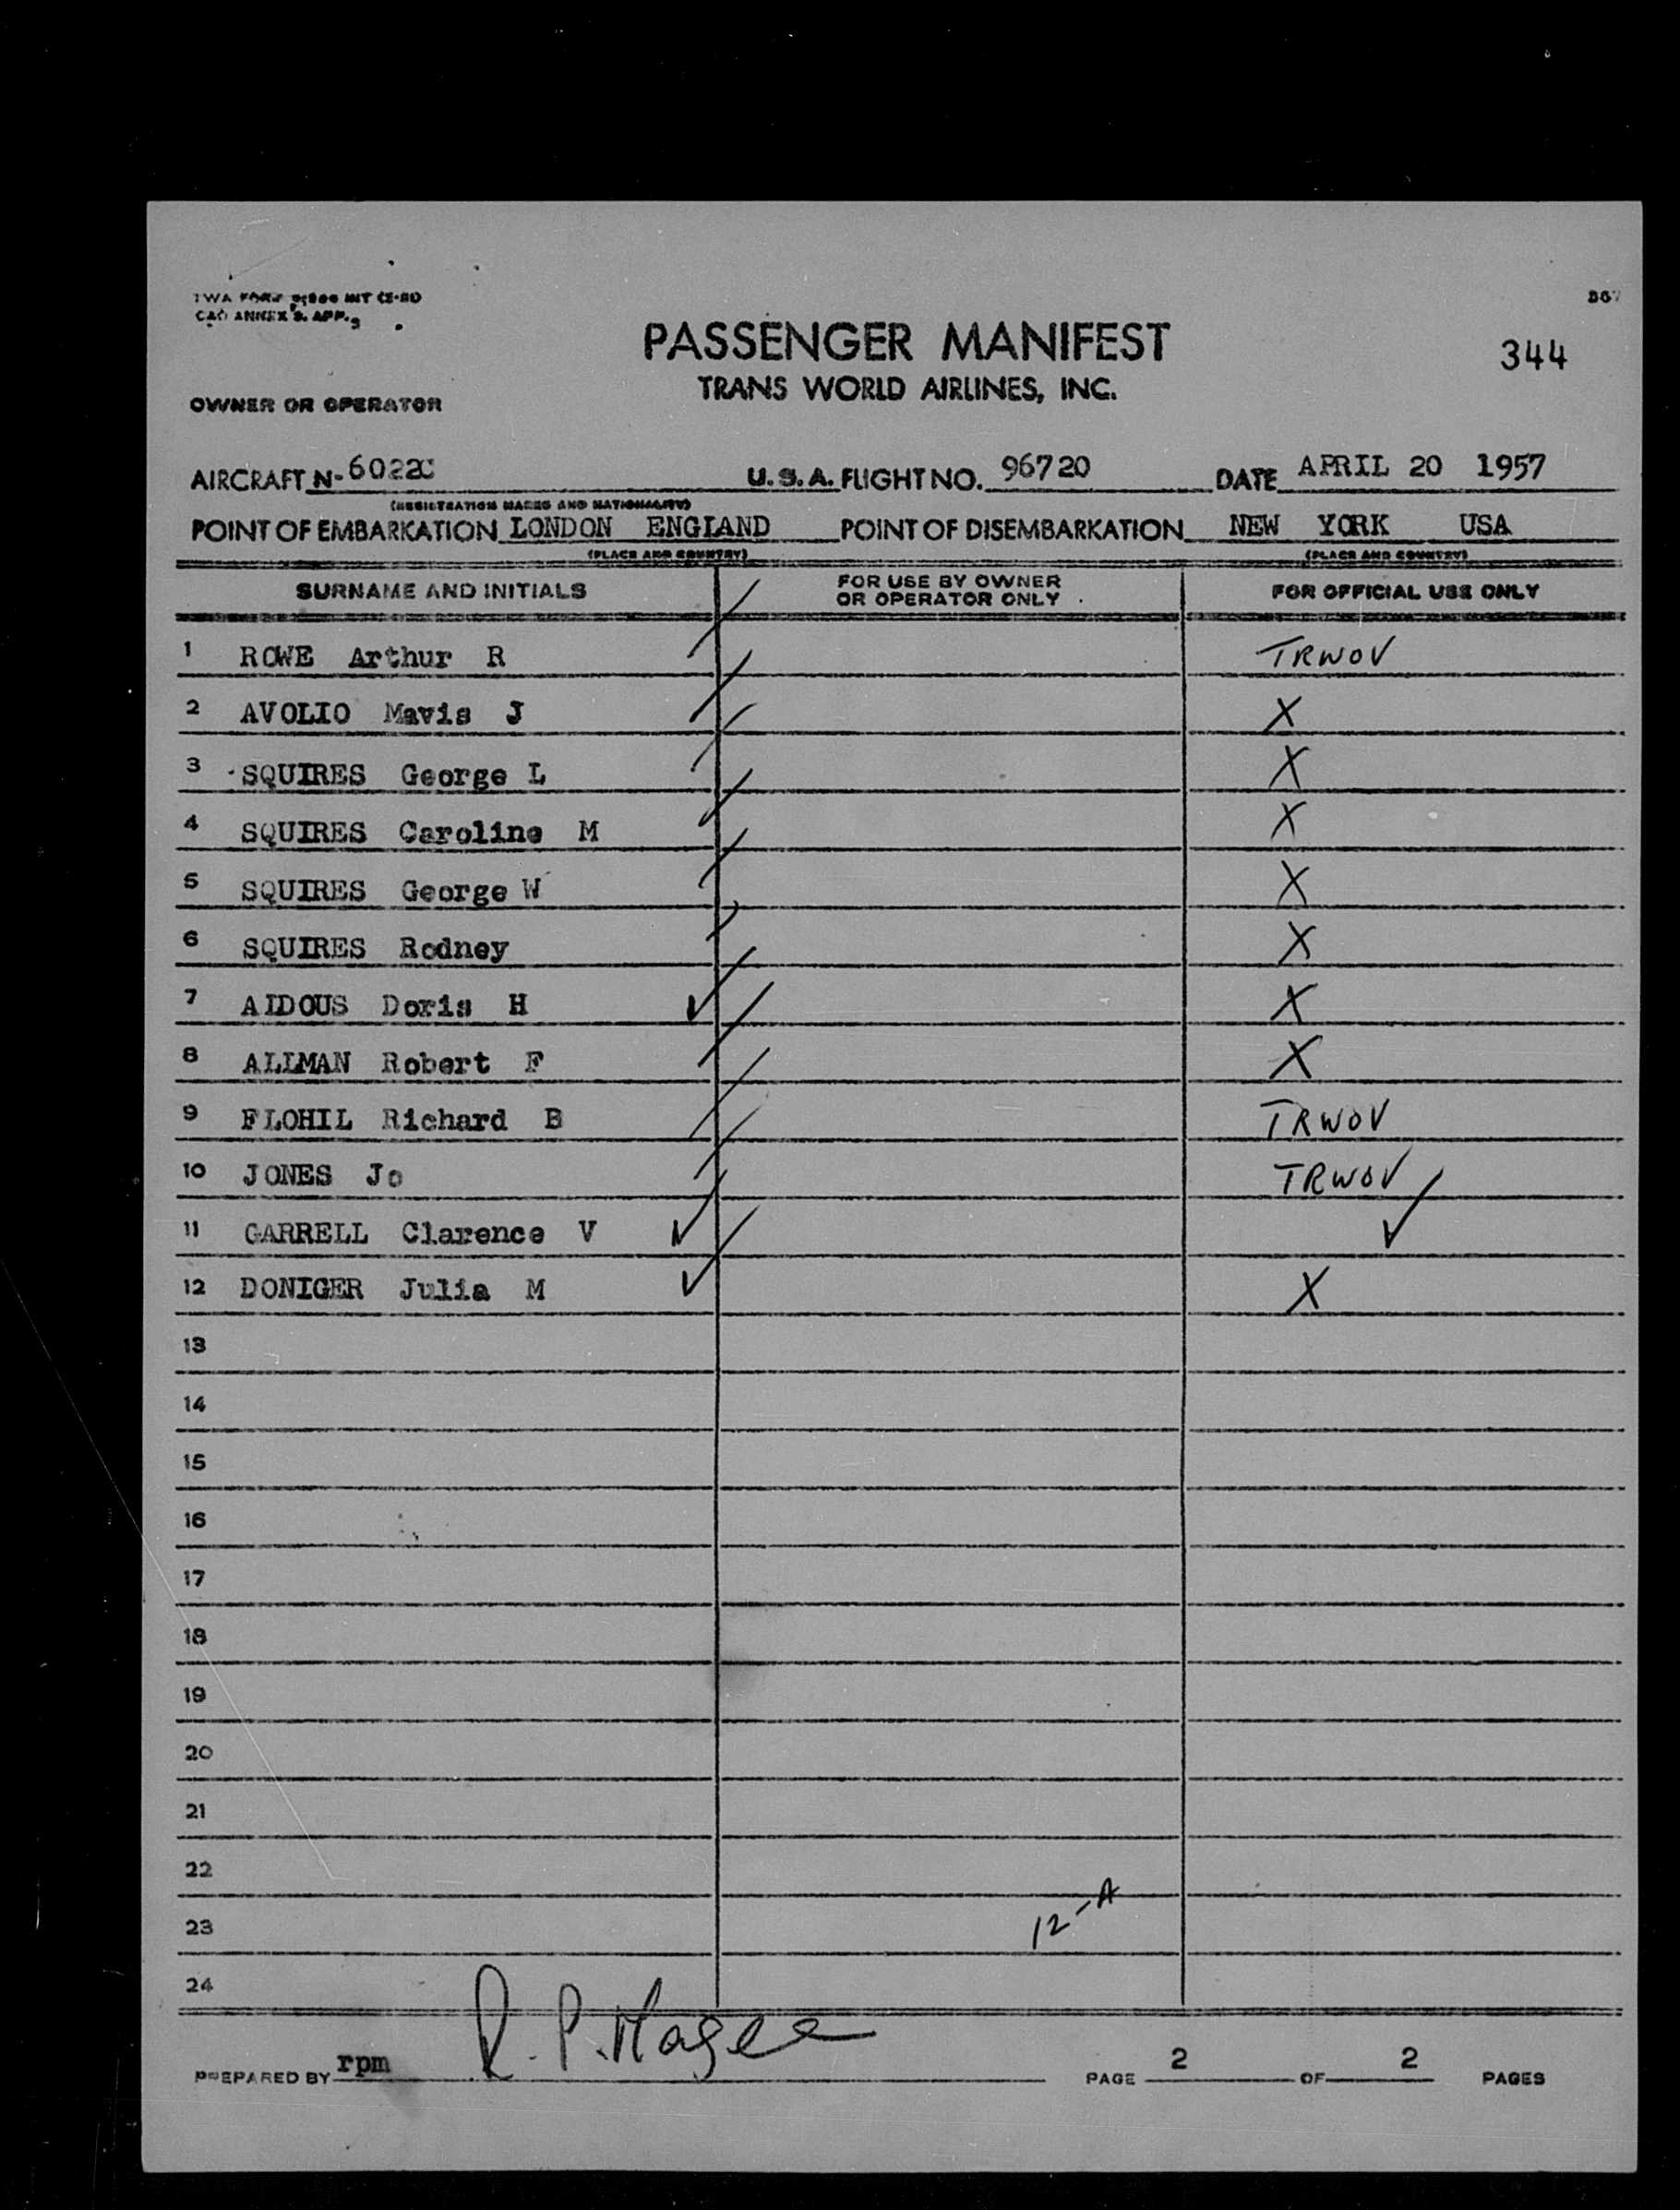 PASSENGER MANIFEST
344
TRANS WORLD AIRLINES, INC.
OWNER OR OPERATOR
AIRCRAFT N- U.S.A. FLIGHT NO. 96720 DATE APRIL 20 1957
(REGISTRATION MARKS AND NATIONALITY)
POINT OF EMBARKATION LONDON ENGLAND POINT OF DISEMBARKATION NEW YORK USA
(PLACE AND COUNTRY) (PLACE AND COUNTRY)
SURNAME AND INITIALS FOR USE BY OWNER OR OPERATOR ONLY FOR OFFICIAL USE ONLY
1 ROWE Arthur R TRWOV
2 AVOLIO Mavis J X
3 SQUIRES George L X
4 SQUIRES Caroline M X
5 SQUIRES George W X
6 SQUIRES Rodney X
7 AIDOUS Doris H X
8 ALLMAN Robert F X
9 FLOHIL Richard B TRWOV
10 JONES Jo TRWOV
11 GARRELL Clarence V
12 DONIGER Julia M X
13
14
15
16
17
18
19
20
21
22
12-A
23
24
R. P. Magee
PREPARED BY rpm PAGE 2 OF 2 PAGES